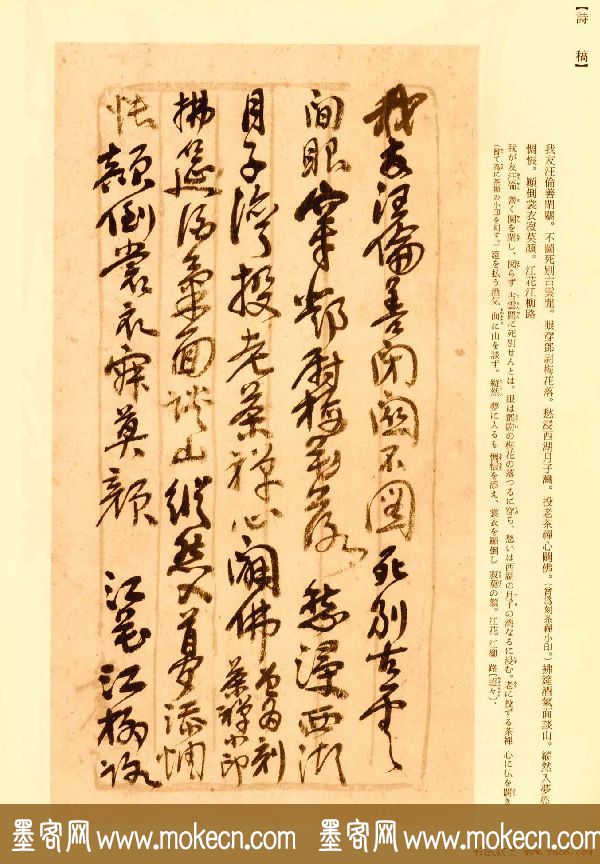 【詩稿】
我友汪倫善閉關。不圖死別古雲間。眼穿鄧尉梅花落。愁浸西湖月子灣。投老茶禪心闢佛。(曾爲刻茶禪小印。)拂筵酒氣面談山。縱然入夢添
惆悵。顛倒裳衣寂莫顏。江花江柳路
我が友汪倫 善く関を閉し、図らず 古雲間に死別せんとは。眼は鄧尉の梅花の落つるに穿ち、愁いは西湖の月子の湾なるに浸む。老に投ずる茶禅 心に仏を闢き
(曾て為に茶禅の小印を刻す。)筵を払う酒気 面に山を談ず。縦然 夢に入るも 惆悵を添え、裳衣を顛倒し 寂莫の顔。江花 江柳 路
我友汪倫善閉關不圖死別古雲
間眼穿鄧尉梅花落愁浸西湖
月子灣投老茶禪心闢佛曾爲刻
茶禪小印
拂筵酒氣面談山縱然入夢添惆
悵顛倒裳衣寂莫顏 江花江柳路
墨客网 www.mokecn.com 墨客网 www.mokecn.com